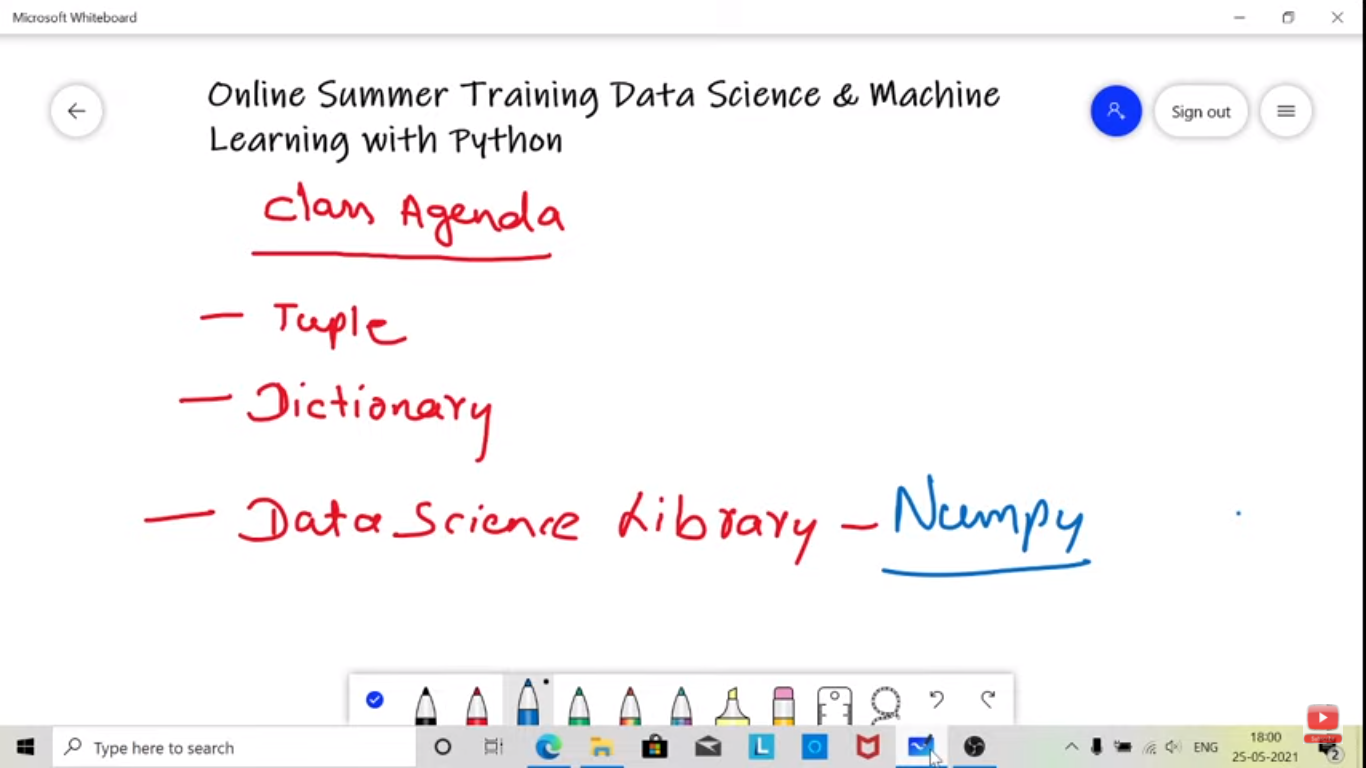 Microsoft Whiteboard
Online Summer Training Data Science & Machine
Learning with Python
Sign out
Class Agenda
— Tuple
— Dictionary
— Data Science Library – Numpy
Type here to search
ENG
18:00
25-05-2021
2